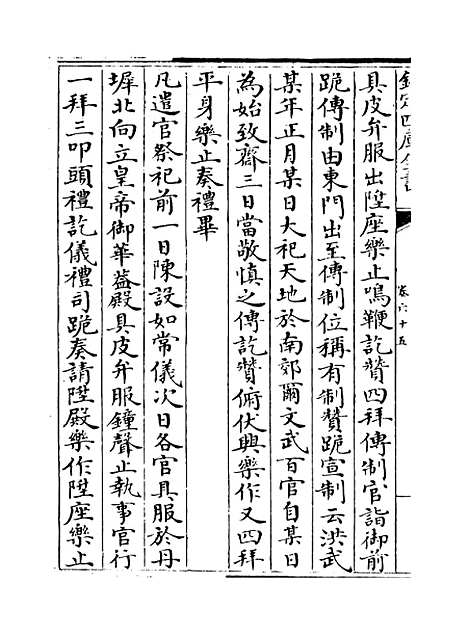 欽定四庫全書
卷六十五
具皮弁服出陞座樂止鳴鞭訖贊四拜傳制官詣御前
跪傳制由東門出至傳制位稱有制贊跪宣制云洪武
某年正月某日大祀天地於南郊爾文武百官自某日
為始致齋三日當敬慎之傳訖贊俯伏興樂作又四拜
平身樂止奏禮畢
凡遣官祭祀前一日陳設如常儀次日各官具服於丹
墀北向立皇帝御華葢殿具皮弁服鐘聲止執事官行
一拜三叩頭禮訖儀禮司跪奏請陞殿樂作陞座樂止